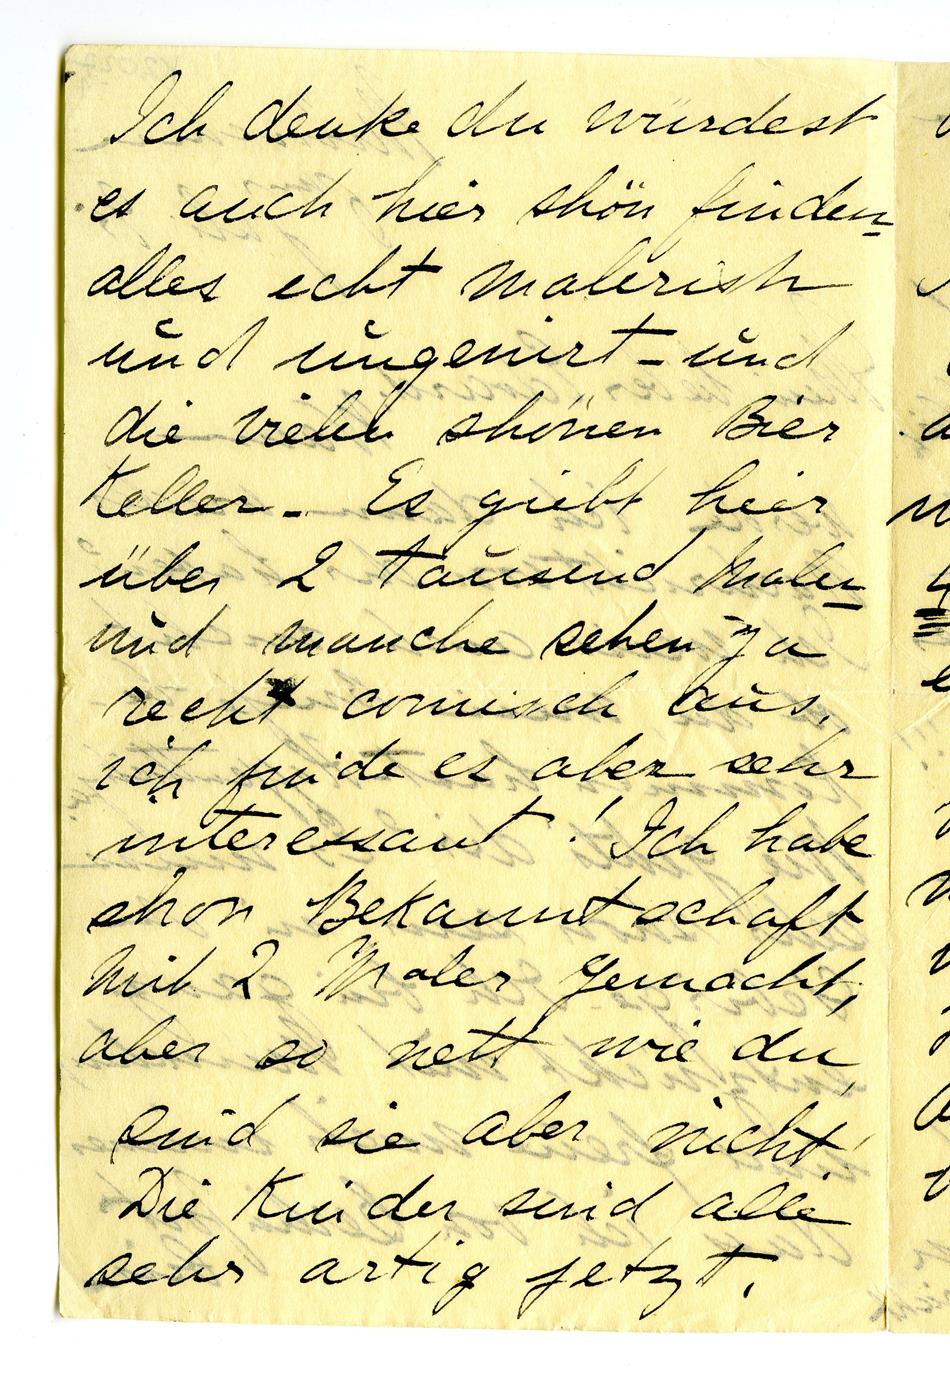 Ich denke du würdest
es auch hier shön finden
alles echt malerish
und ungenirt - und
die vielen shönen Bier
Keller - Es giebt hier
über 2 tausend Maler
und manche sehen ja
recht comisch aus,
ich finde es aber sehr
interessant! Ich habe
shon Bekanntschaft
mit 2 Maler gemacht,
aber so nett wie du
sind sie aber nicht!
Die Kinder sind alle
sehr artig jetzt.